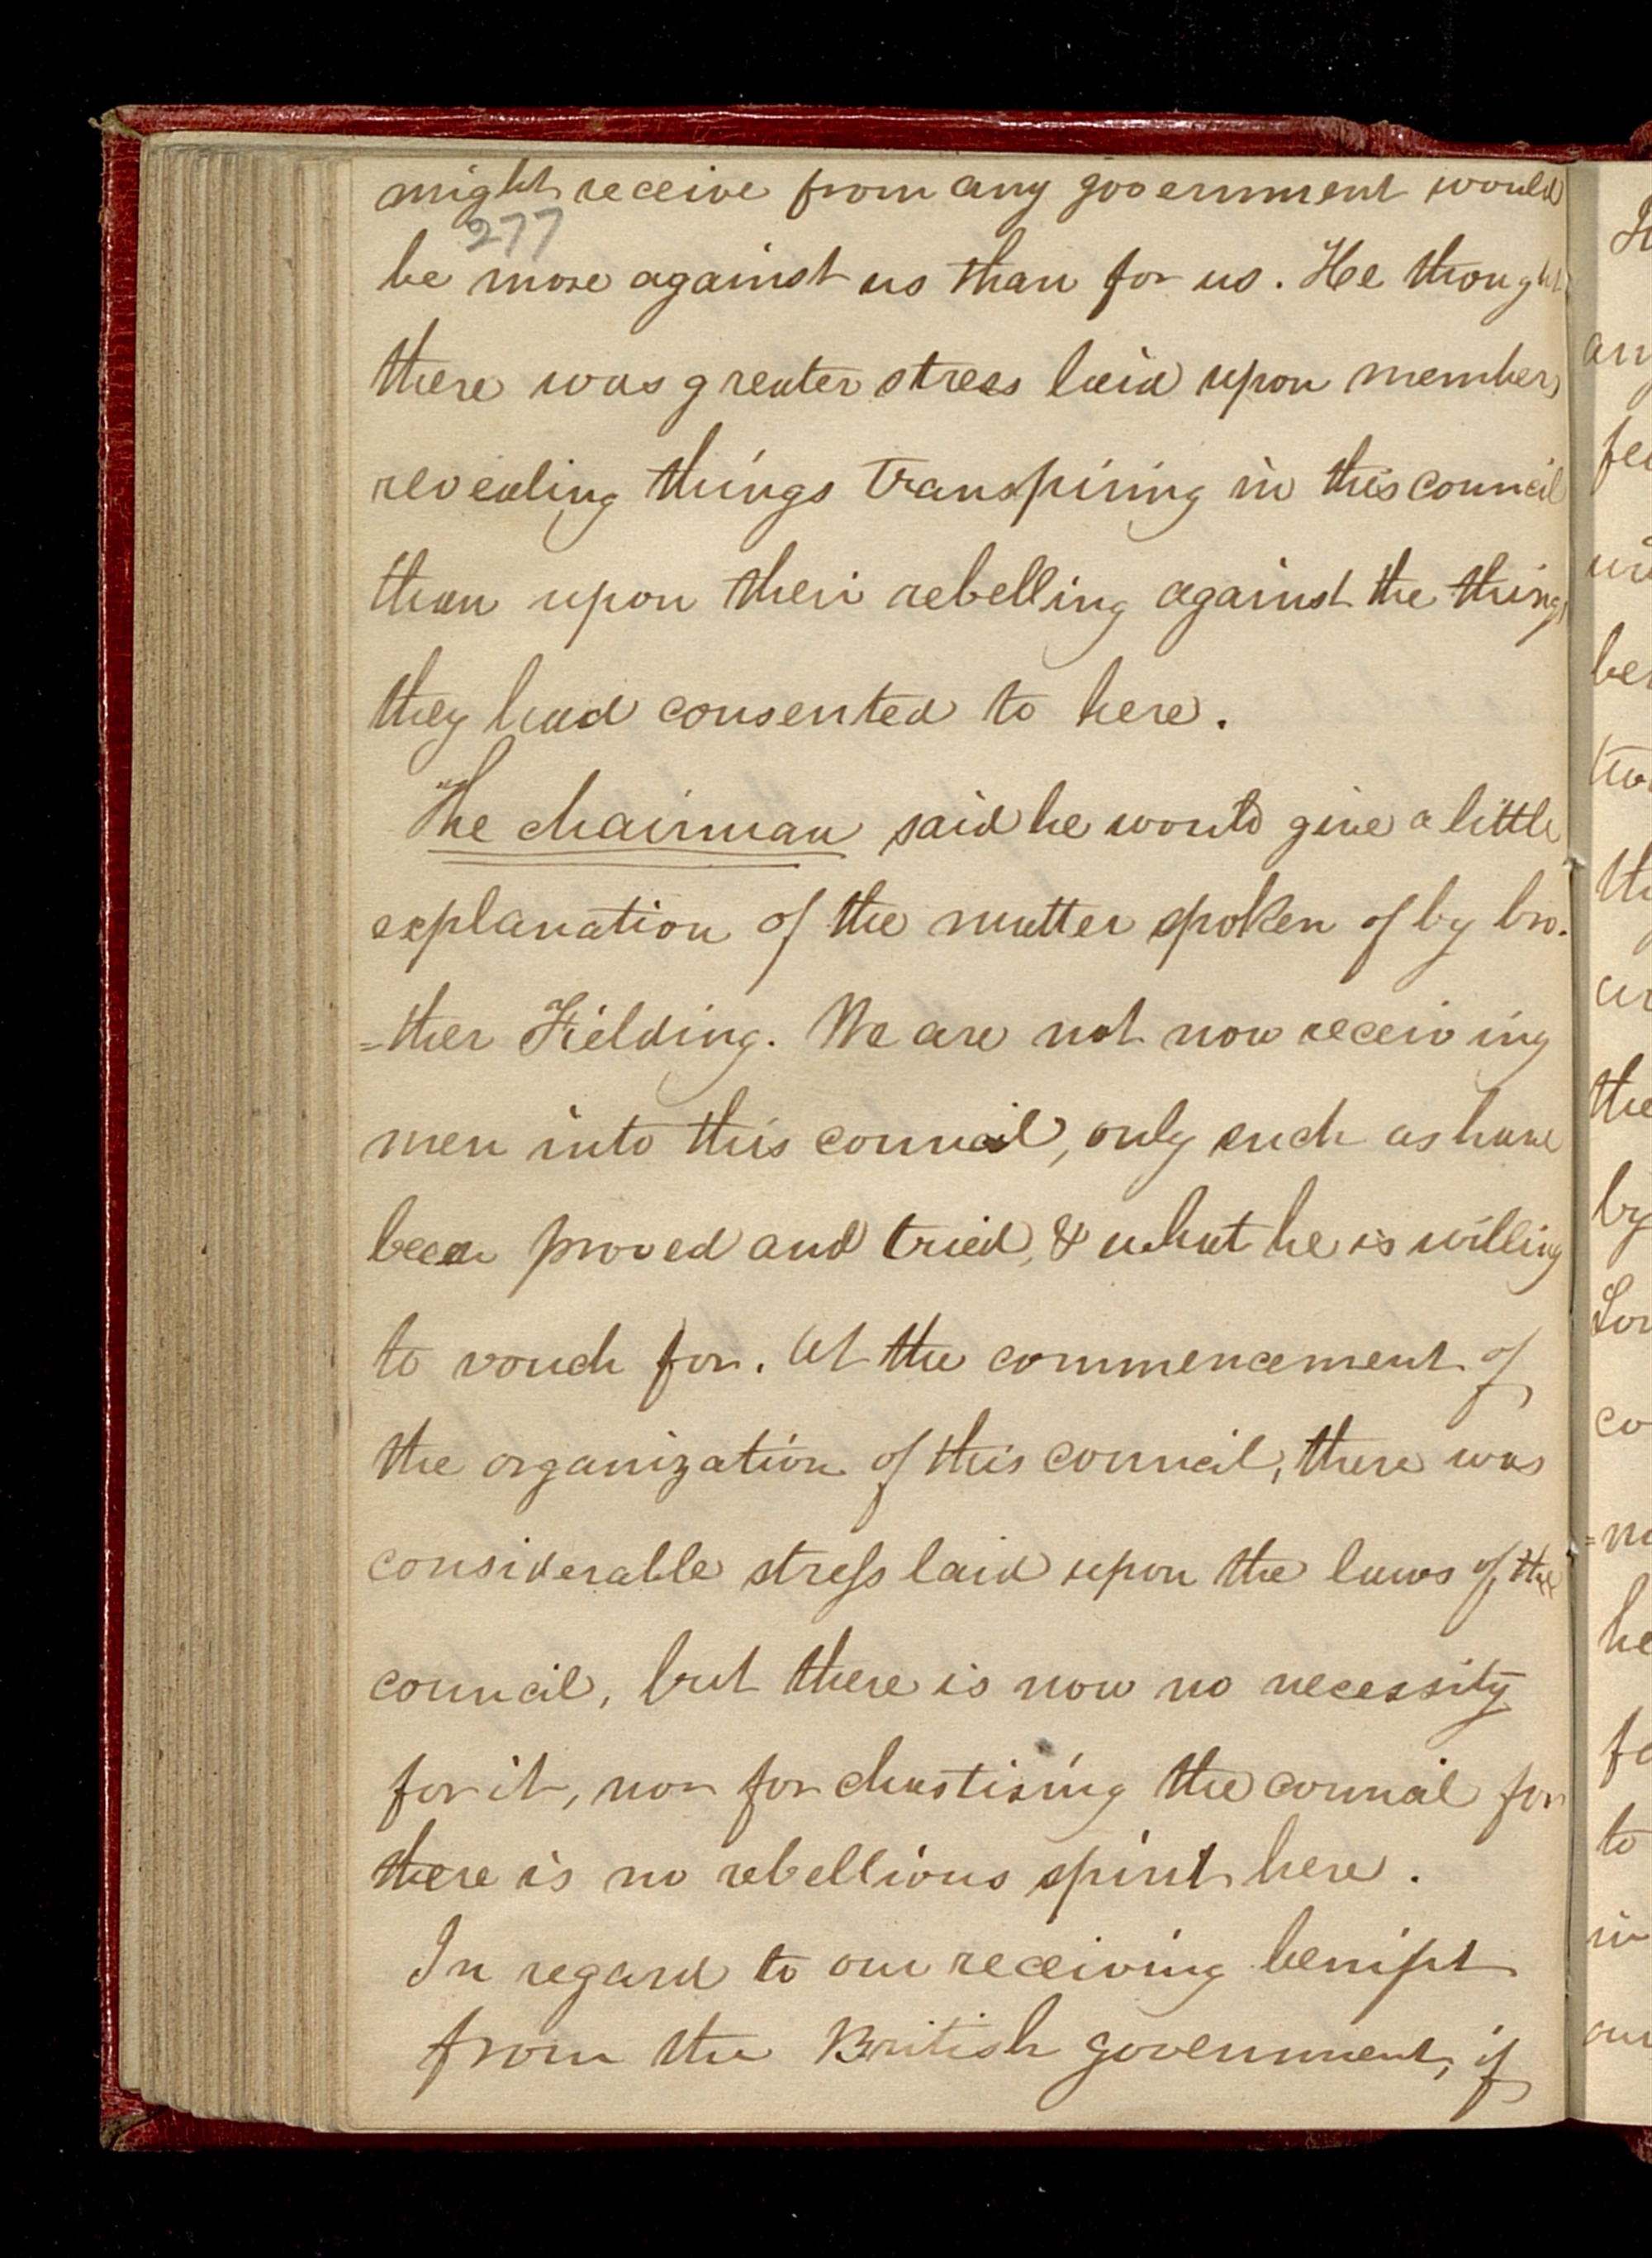 might receive from any government would
277
be more against us than for us. He thought
there was greater stress laid upon members
revealing things transpiring in this council
than upon their rebelling against the things
they had consented to here.
The chairman said he would give a little
explanation of the matter spoken of by bro-
=ther Fielding. We are not now receiving
men into this council, only such as have
been proved and tried, & what he is willing
to vouch for. At the commencement of
the organization of this council, there was
considerable stress laid upon the laws of the
council, but there is now no necessity
for it, nor for chastising the council for
there is no rebellious spirit here.
In regard to our receiving benifit
from the British government, if